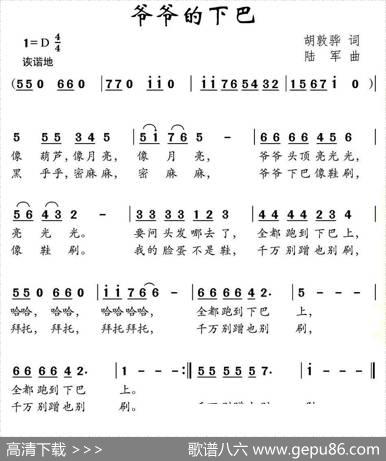 爷爷的下巴
1=D 4/4
胡敦骅 词
诙谐地
陆军 曲
(550 660 | 770 ii0 | ii76 5432 | 1567 i0)
5 55 345 | 5i 76 5 - | 66 66 456 |
像 葫芦,像月亮, 像 月 亮, 爷爷头顶亮光光,
黑 乎乎,密麻麻, 密 麻 麻, 爷爷下巴像鞋刷,
56 43 2 - | 33 33 123 | 44 44 234 |
亮 光 光。 要问头发哪去了, 全都跑到下巴上,
像 鞋 刷。 我的脸蛋不是鞋, 千万别蹭也别刷,
550 660 | ii76 6 - | 66 66 42. | 5 - - |
哈哈, 哈哈, 哈哈哈哈, 全都跑到下巴 上,
拜托, 拜托, 拜托拜托, 千万别蹭也别 刷,
66 66 42. | 1 - - :| 55 55 57. | i - - ‖
全都跑到下巴 上。
千万别蹭也别 刷。 千万别蹭也别 刷。
高清下载 >>>
歌谱八六 www.gepu86.com